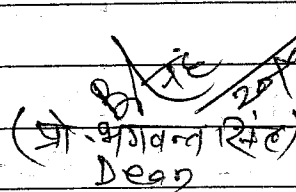 (प्रो. भगवन्त सिंह)
Dean